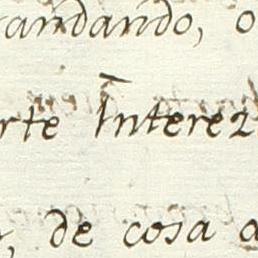 andando, o
rte Interez
, de cosa a